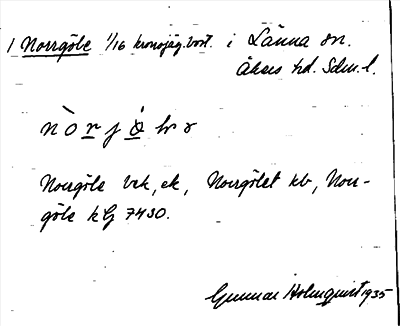 1 Norrgöle 1/16 kronojäg.bost. i Länna sn.
Åkers hd. Sdm. l.
Norrgöle bek, ek, Norrgölet kb, Norr-
göle kG 7430.
Gunnar Holmquist 1935